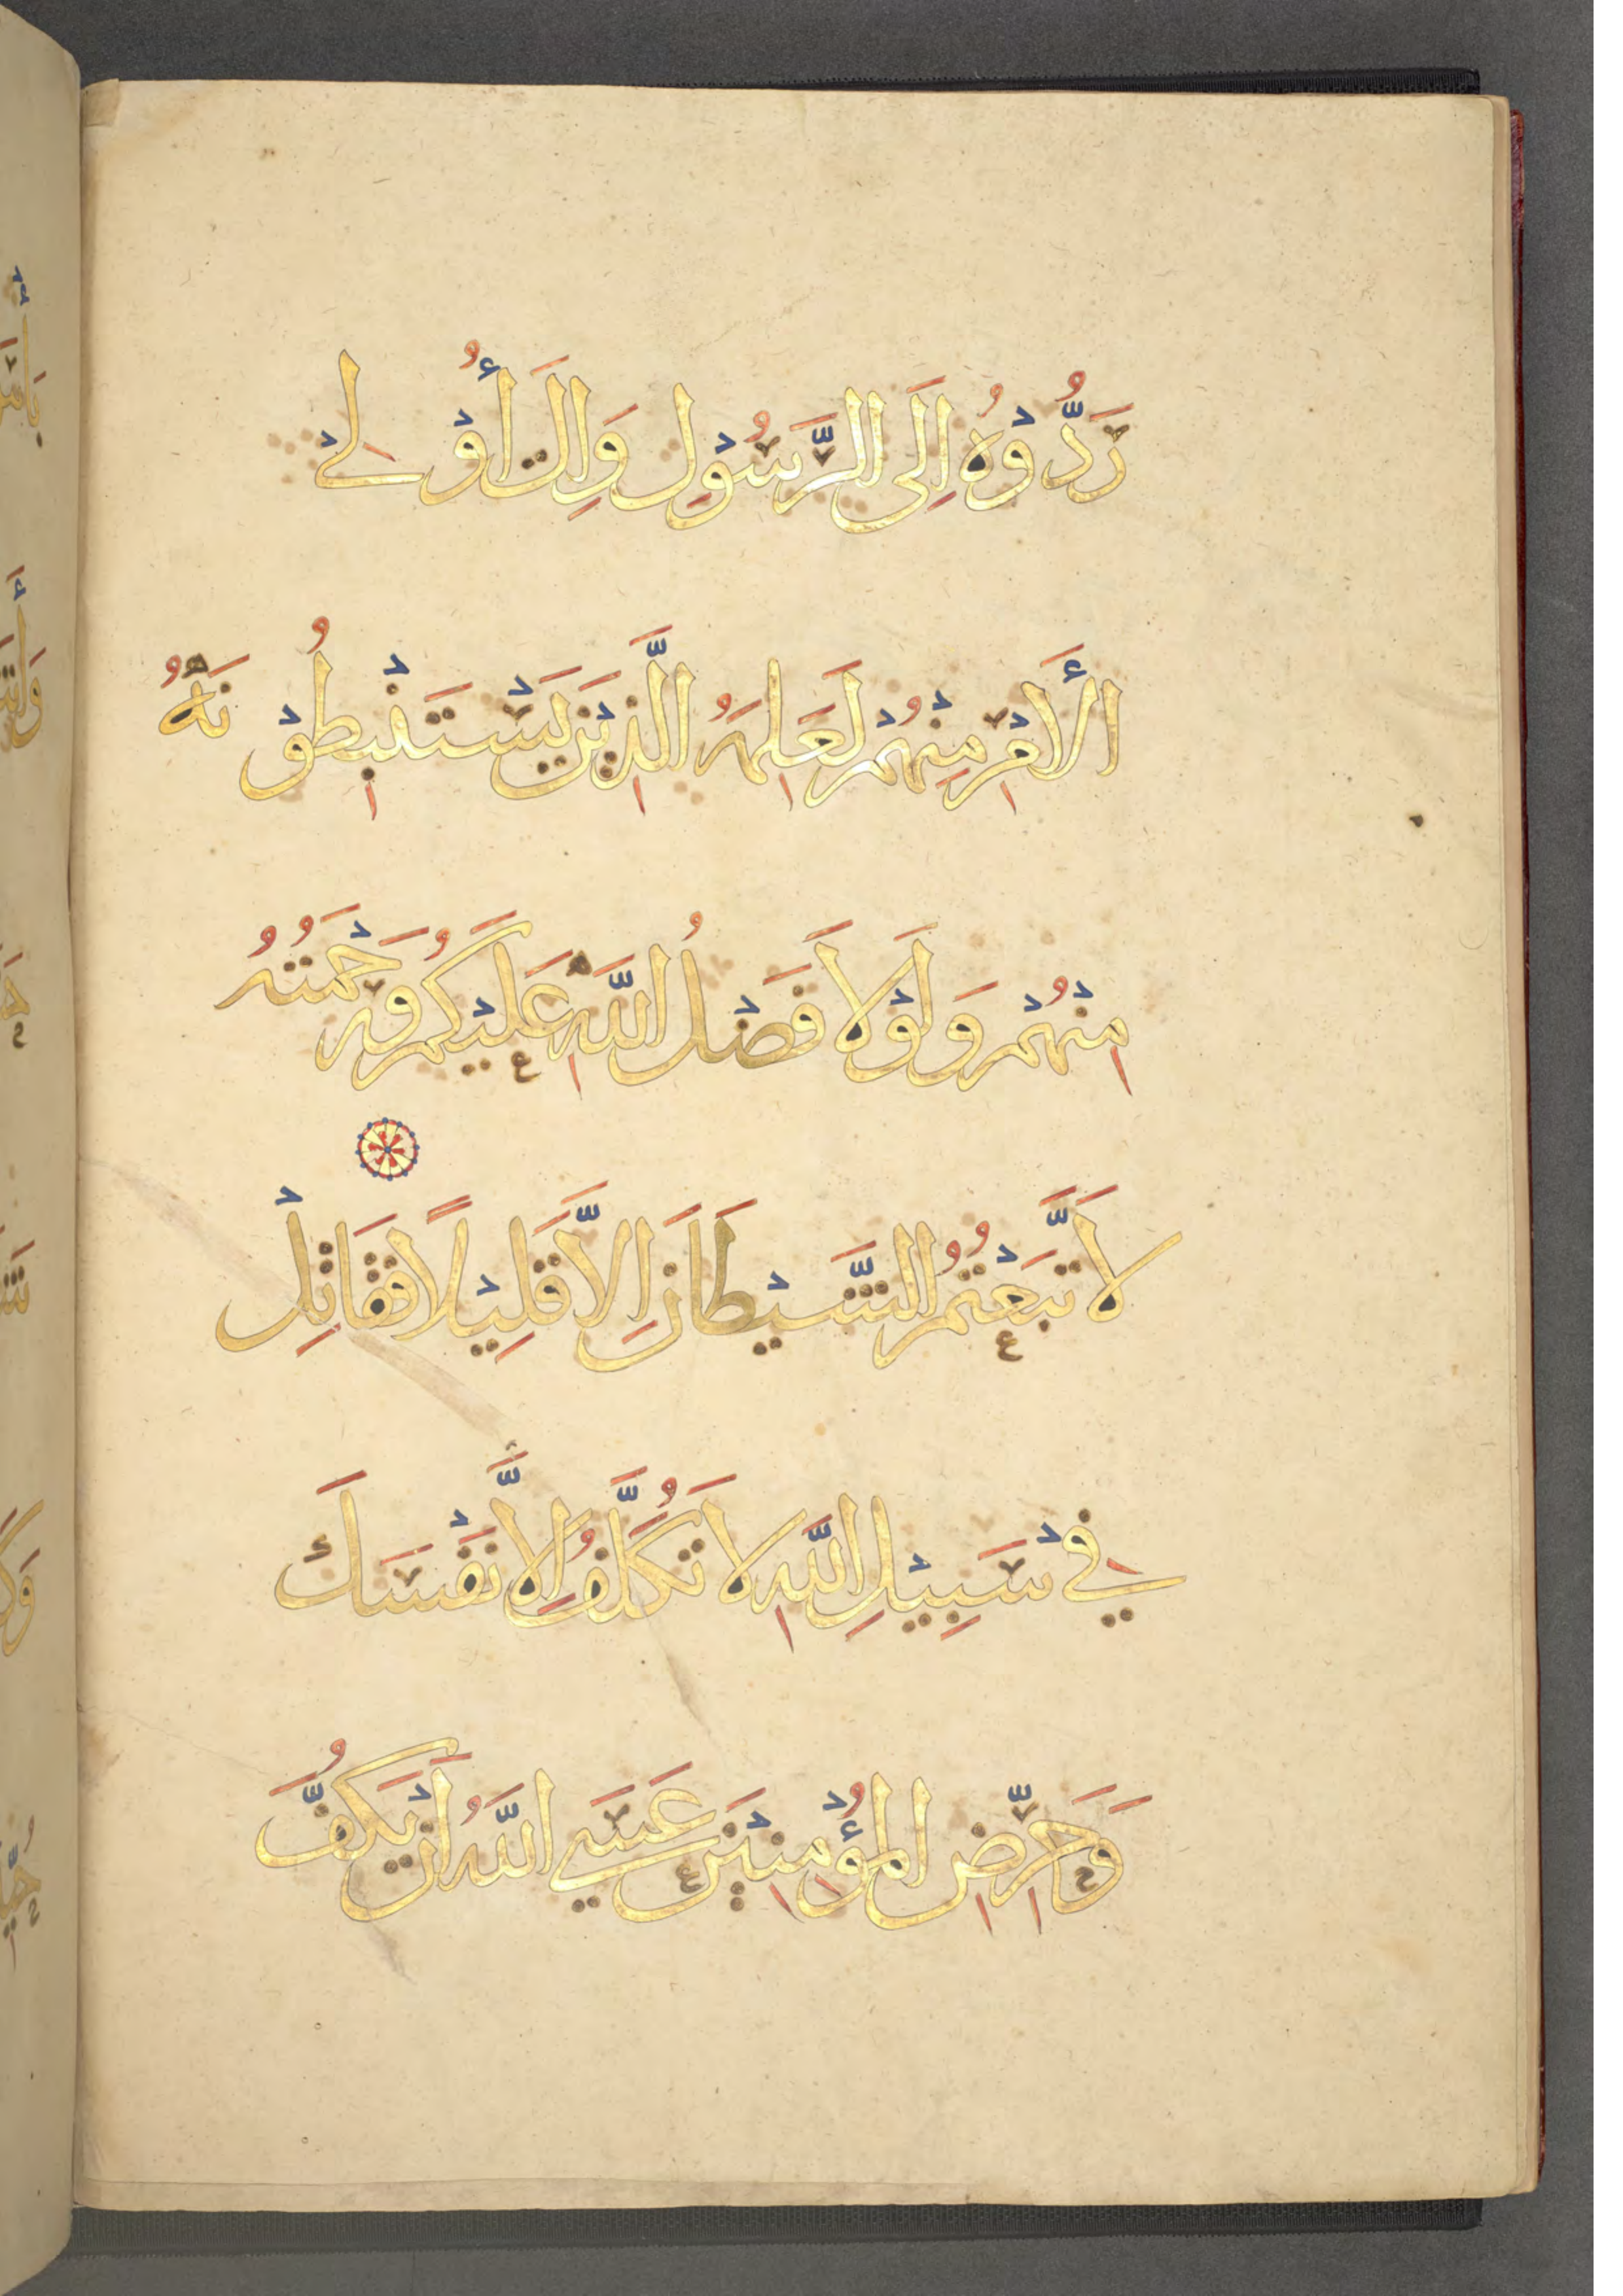 رَدُّوْهُ اِلَى الرَّسُوْلِ وَاِلَى أُوْلِي
الْأَمْرِ مِنْهُمْ لَعَلِمَهُ الَّذِيْنَ يَسْتَنْبِطُوْنَهُ
مِنْهُمْ وَلَوْلَا فَضْلُ اللَّهِ عَلَيْكُمْ وَرَحْمَتُهُ
لَاتَّبَعْتُمُ الشَّيْطَانَ اِلَّا قَلِيْلًا فَقَاتِلْ
فِيْ سَبِيْلِ اللَّهِ لَا تُكَلَّفُ اِلَّا نَفْسَكَ
وَحَرِّضِ الْمُؤْمِنِيْنَ عَسَى اللَّهُ اَنْ يَكُفَّ